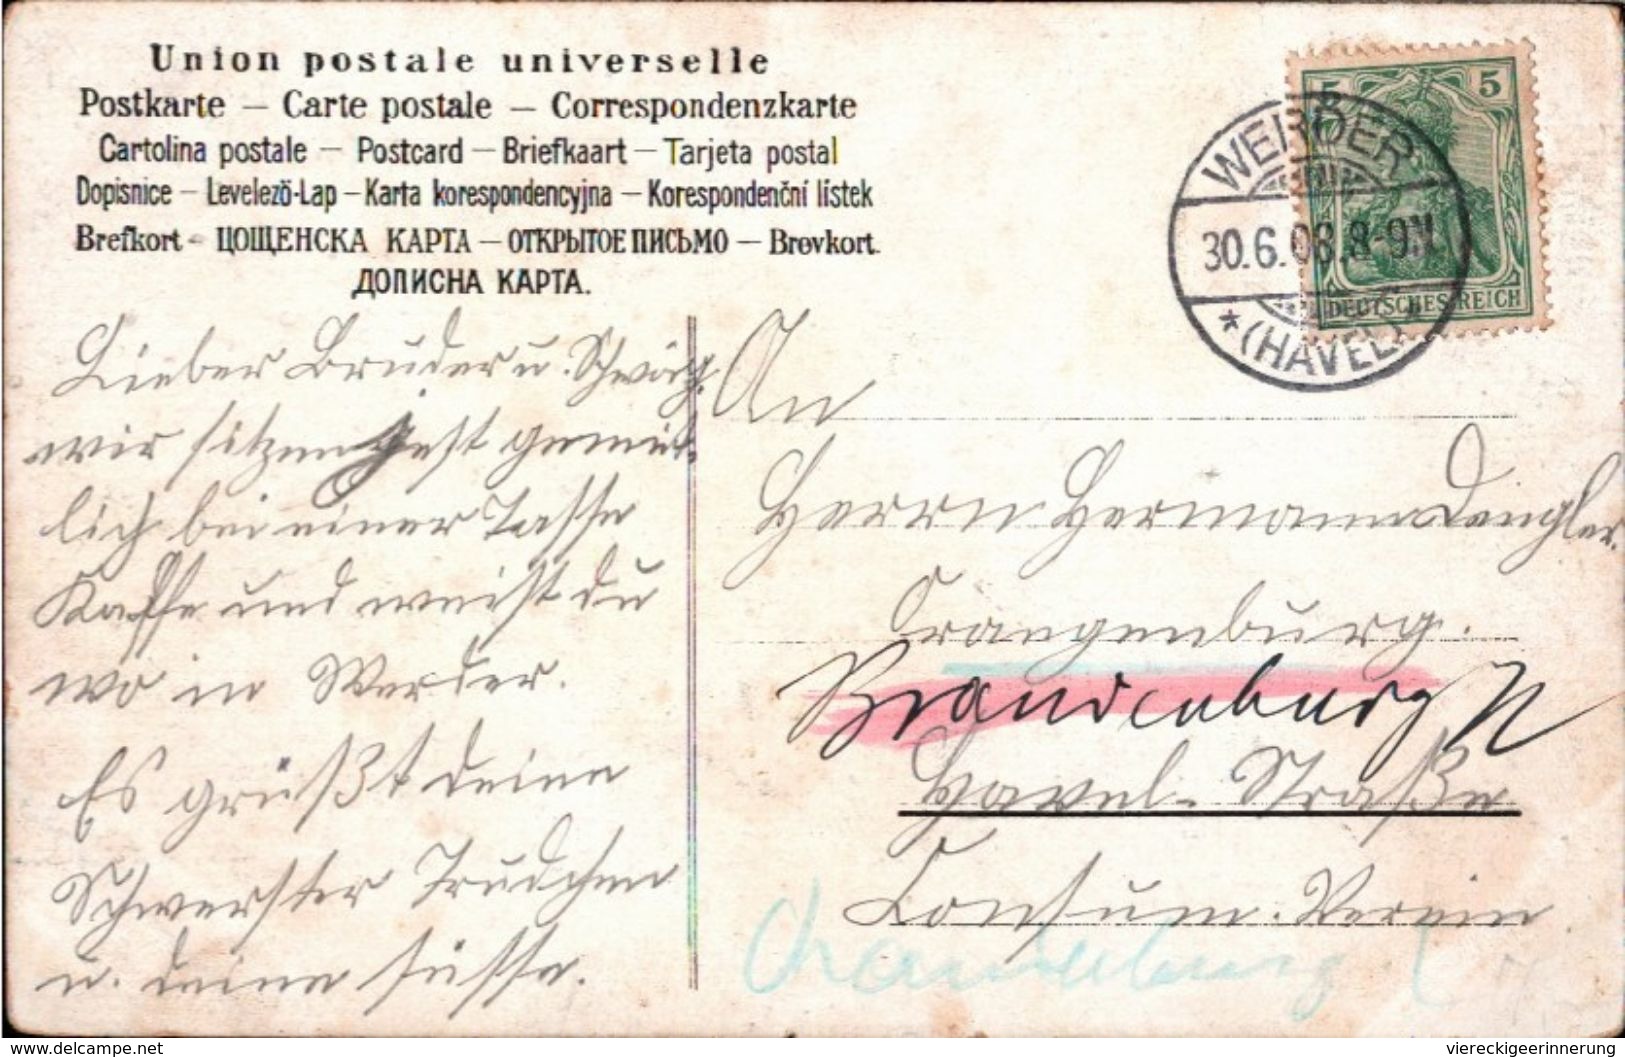 Union postale universelle
Postkarte – Carte postale – Correspondenzkarte
Cartolina postale – Postcard – Briefkaart – Tarjeta postal
Dopisnice – Levelező-Lap – Karta korespondencyjna – Korespondenční lístek
Brefkort – ЦОЩЕНСКА КАРТА – ОТКРЫТОЕ ПИСЬМО – Brevkort.
ДОПИСНА КАРТА.
5 5
DEUTSCHES REICH
WERDER
30.6.08.8-9N.
*(HAVEL)
Lieber Bruder u. Schwäg.
wir sitzen jest gemüt-
lich bei einer Tasse
Kaffe und weist du
wo in Werder.
Es grüßt deine
Schwerster Trudchen
u. deine süsse.
An
Herrn Hermann Dengler.
Orangenburg.
Brandenburg
Havel-Straße
Consum-Verein
Brandenburg
viereckigeerinnerung
www.delcampe.net